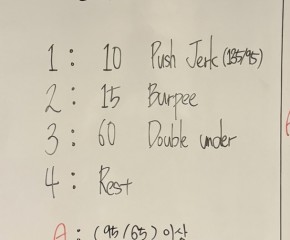 1 : 10 Push Jerk (135/95)
2 : 15 Burpee
3 : 60 Double under
4 : Rest
A : (95/65) 이상